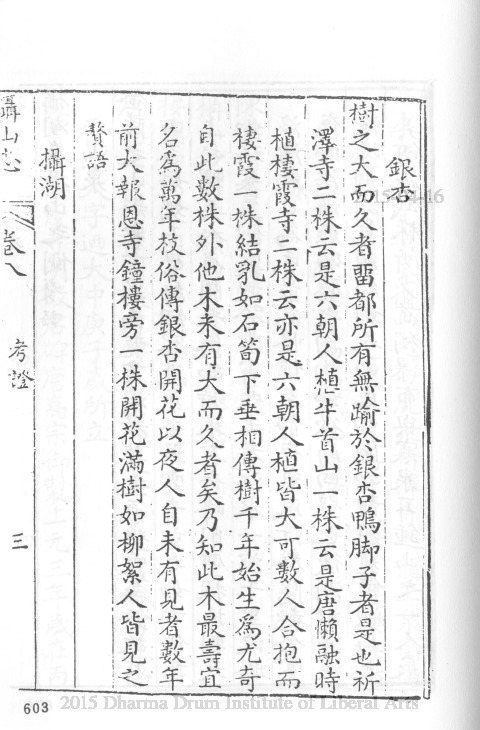 銀杏
樹之大而久者畱都所有無踰於銀杏鴨脚子者是也祈
澤寺二株云是六朝人植牛首山一株云是唐懶融時
植棲霞寺二株云亦是六朝人植皆大可數人合抱而
棲霞一株結乳如石筍下垂相傳樹千年始生爲尤奇
自此數株外他木未有大而久者矣乃知此木最壽宜
名爲萬年枝俗傳銀杏開花以夜人自未有見者數年
前大報恩寺鐘樓旁一株開花滿樹如柳絮人皆見之
贅語
攝湖
攝山志 卷八 考證 三
603
2015 Dharma Drum Institute of Liberal Arts